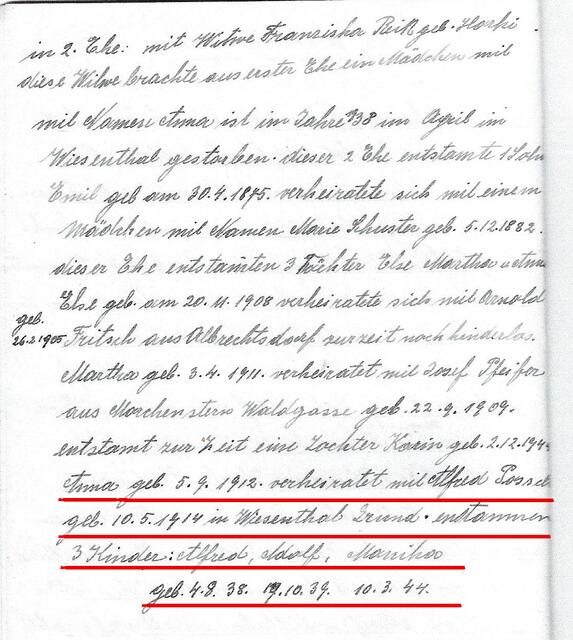 in 2. Ehe: mit Witwe Franziska Reiß geb. Horki
diese Witwe brachte aus erster Ehe ein Mädchen mit
mit Namen Anna ist im Jahre 38 im April in
Wiesenthal gestorben. dieser 2 Ehe entstamte 1 Sohn
Emil geb am 30.4.1875. verheiratete sich mit einem
Mädchen mit Namen Marie Schuster geb. 5.12.1882.
dieser Ehe entstamten 3 Töchter Else Martha u Anna
Else geb. am 20.11.1908 verheiratete sich mit Arnold
geb. 26.2.1905
Fritsch aus Albrechtsdorf zurzeit noch kinderlos.
Martha geb. 3.4.1911. verheiratet mit Josef Pfeifer
aus Morchenstern Waldgasse geb. 22.9.1909.
entstamt zur Zeit eine Tochter Karin geb. 2.12.194
Anna geb. 5.9.1912. verheiratet mit Alfred
geb. 10.5.1914 in Wiesenthal Grund. entstammen
3 Kinder: Alfred, Adolf, Marika
geb. 4.8.38. 19.10.39. 10.3.44.